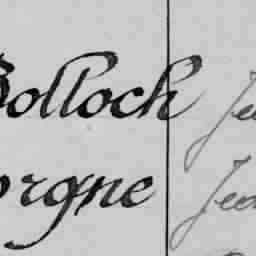 Bolloch Je
orgne Jea